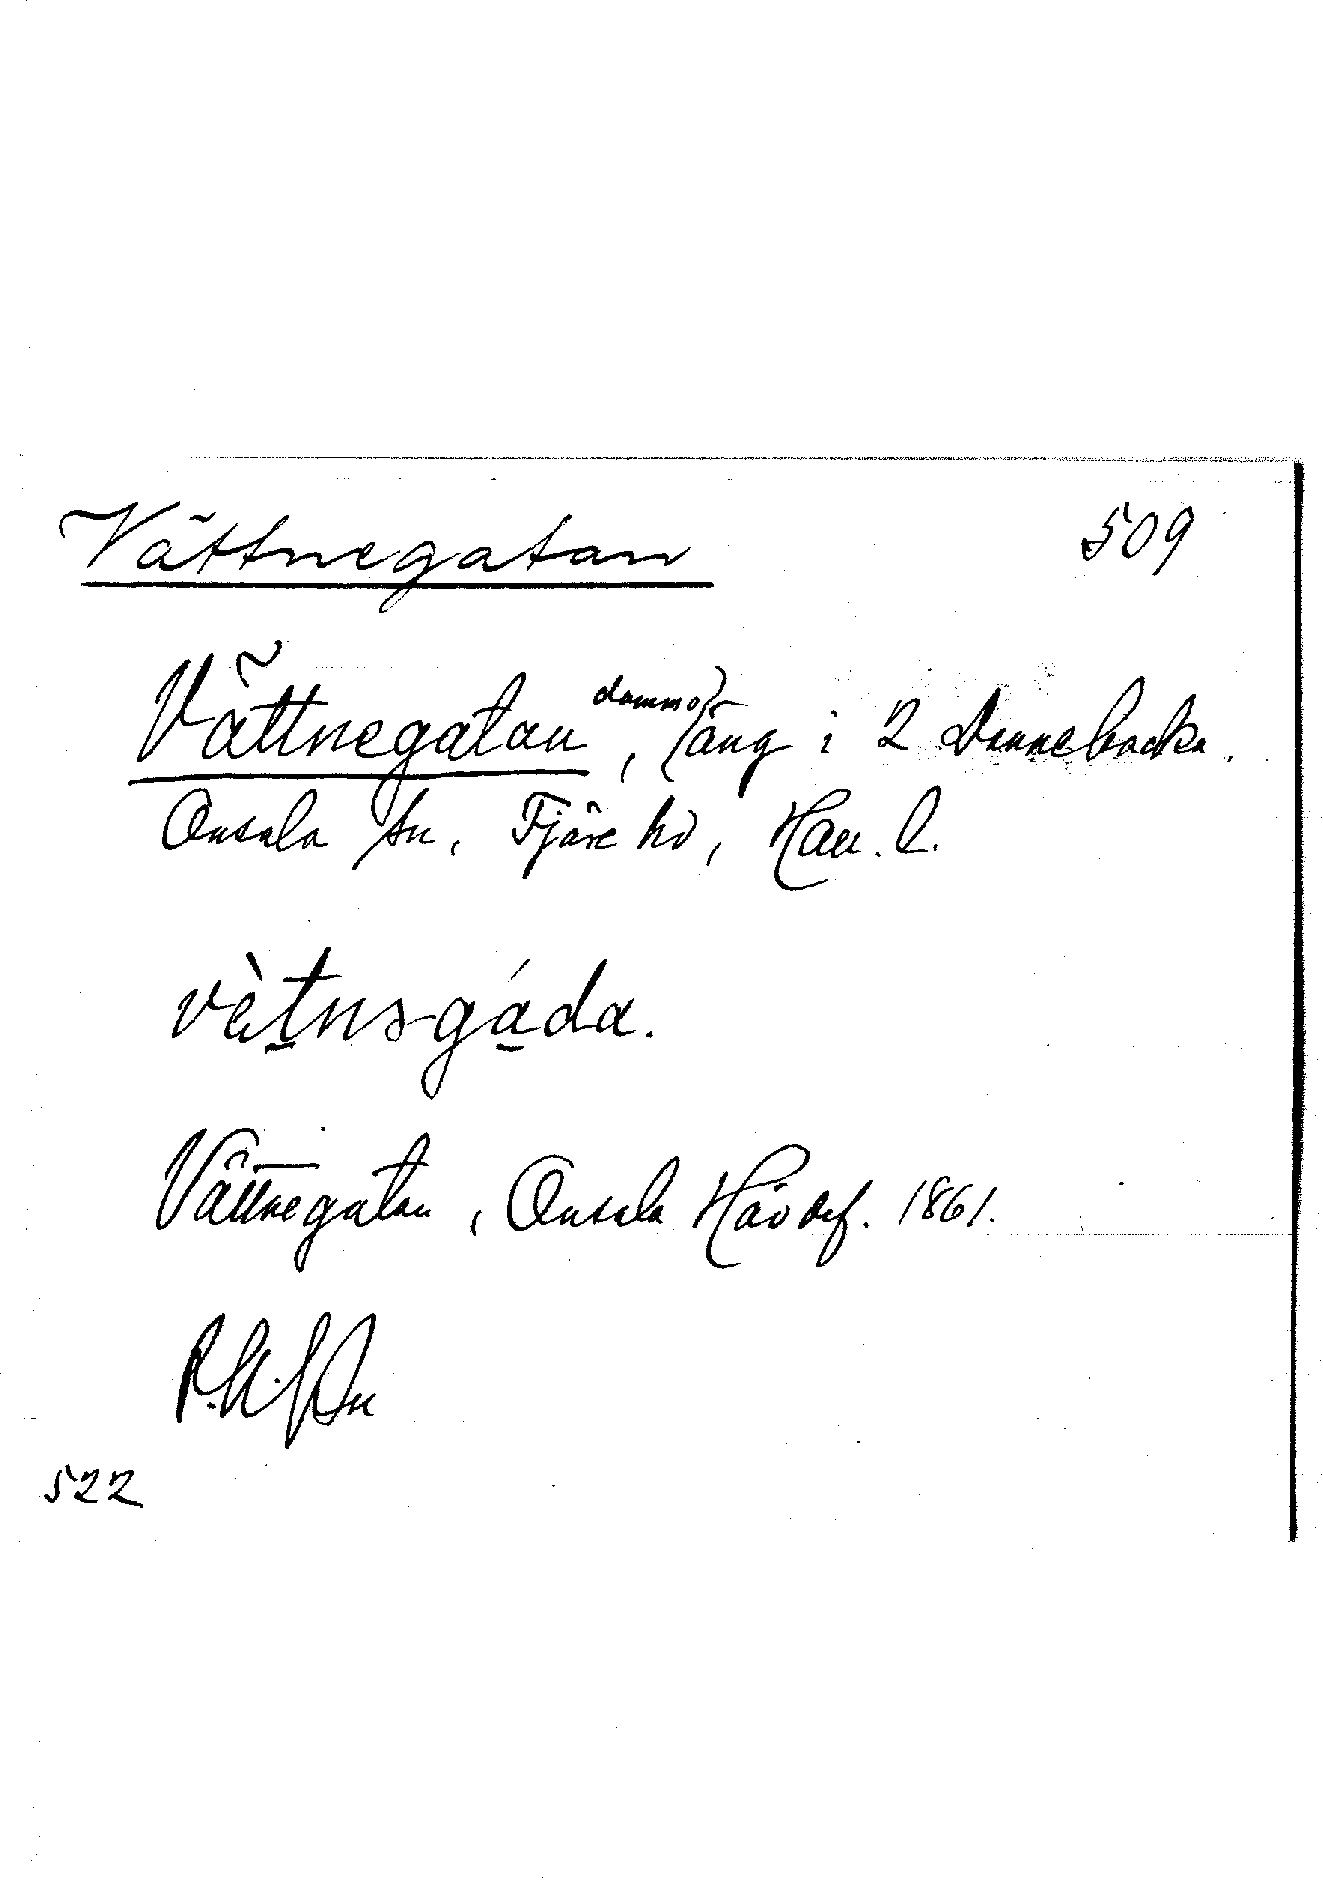 Vättnegatan 509
Vättnegatan, äng i 2 Dannebacka.
Onsala sn, Fjäre hd, Hall. l.
vètnsgáda.
Vättnegatan, Onsala Hävdef. 1861.
522